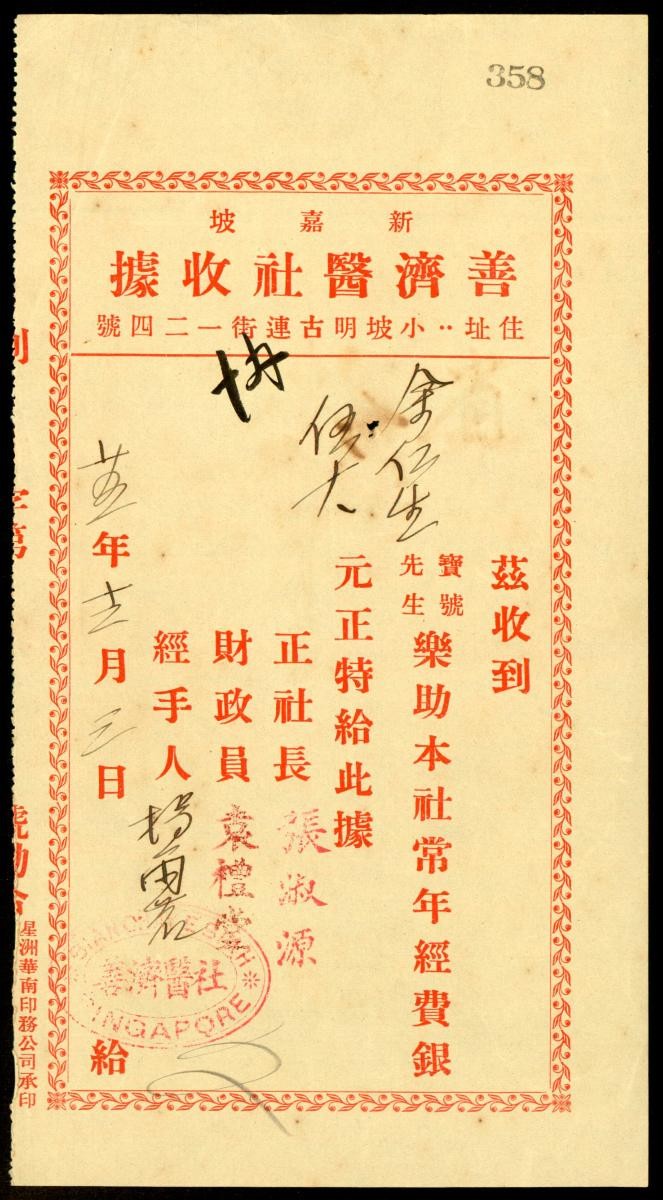 358
新嘉坡
善濟醫社收據
住址：小坡明古連街一二四號
茲收到
余仁生
寶號
先生
樂助本社常年經費銀
伍大
元正特給此據
正社長 張淑源
財政員 袁禮堂
經手人
年十二月三日
給
善濟醫社
SINGAPORE
字第
號勘合
星洲華南印務公司承印